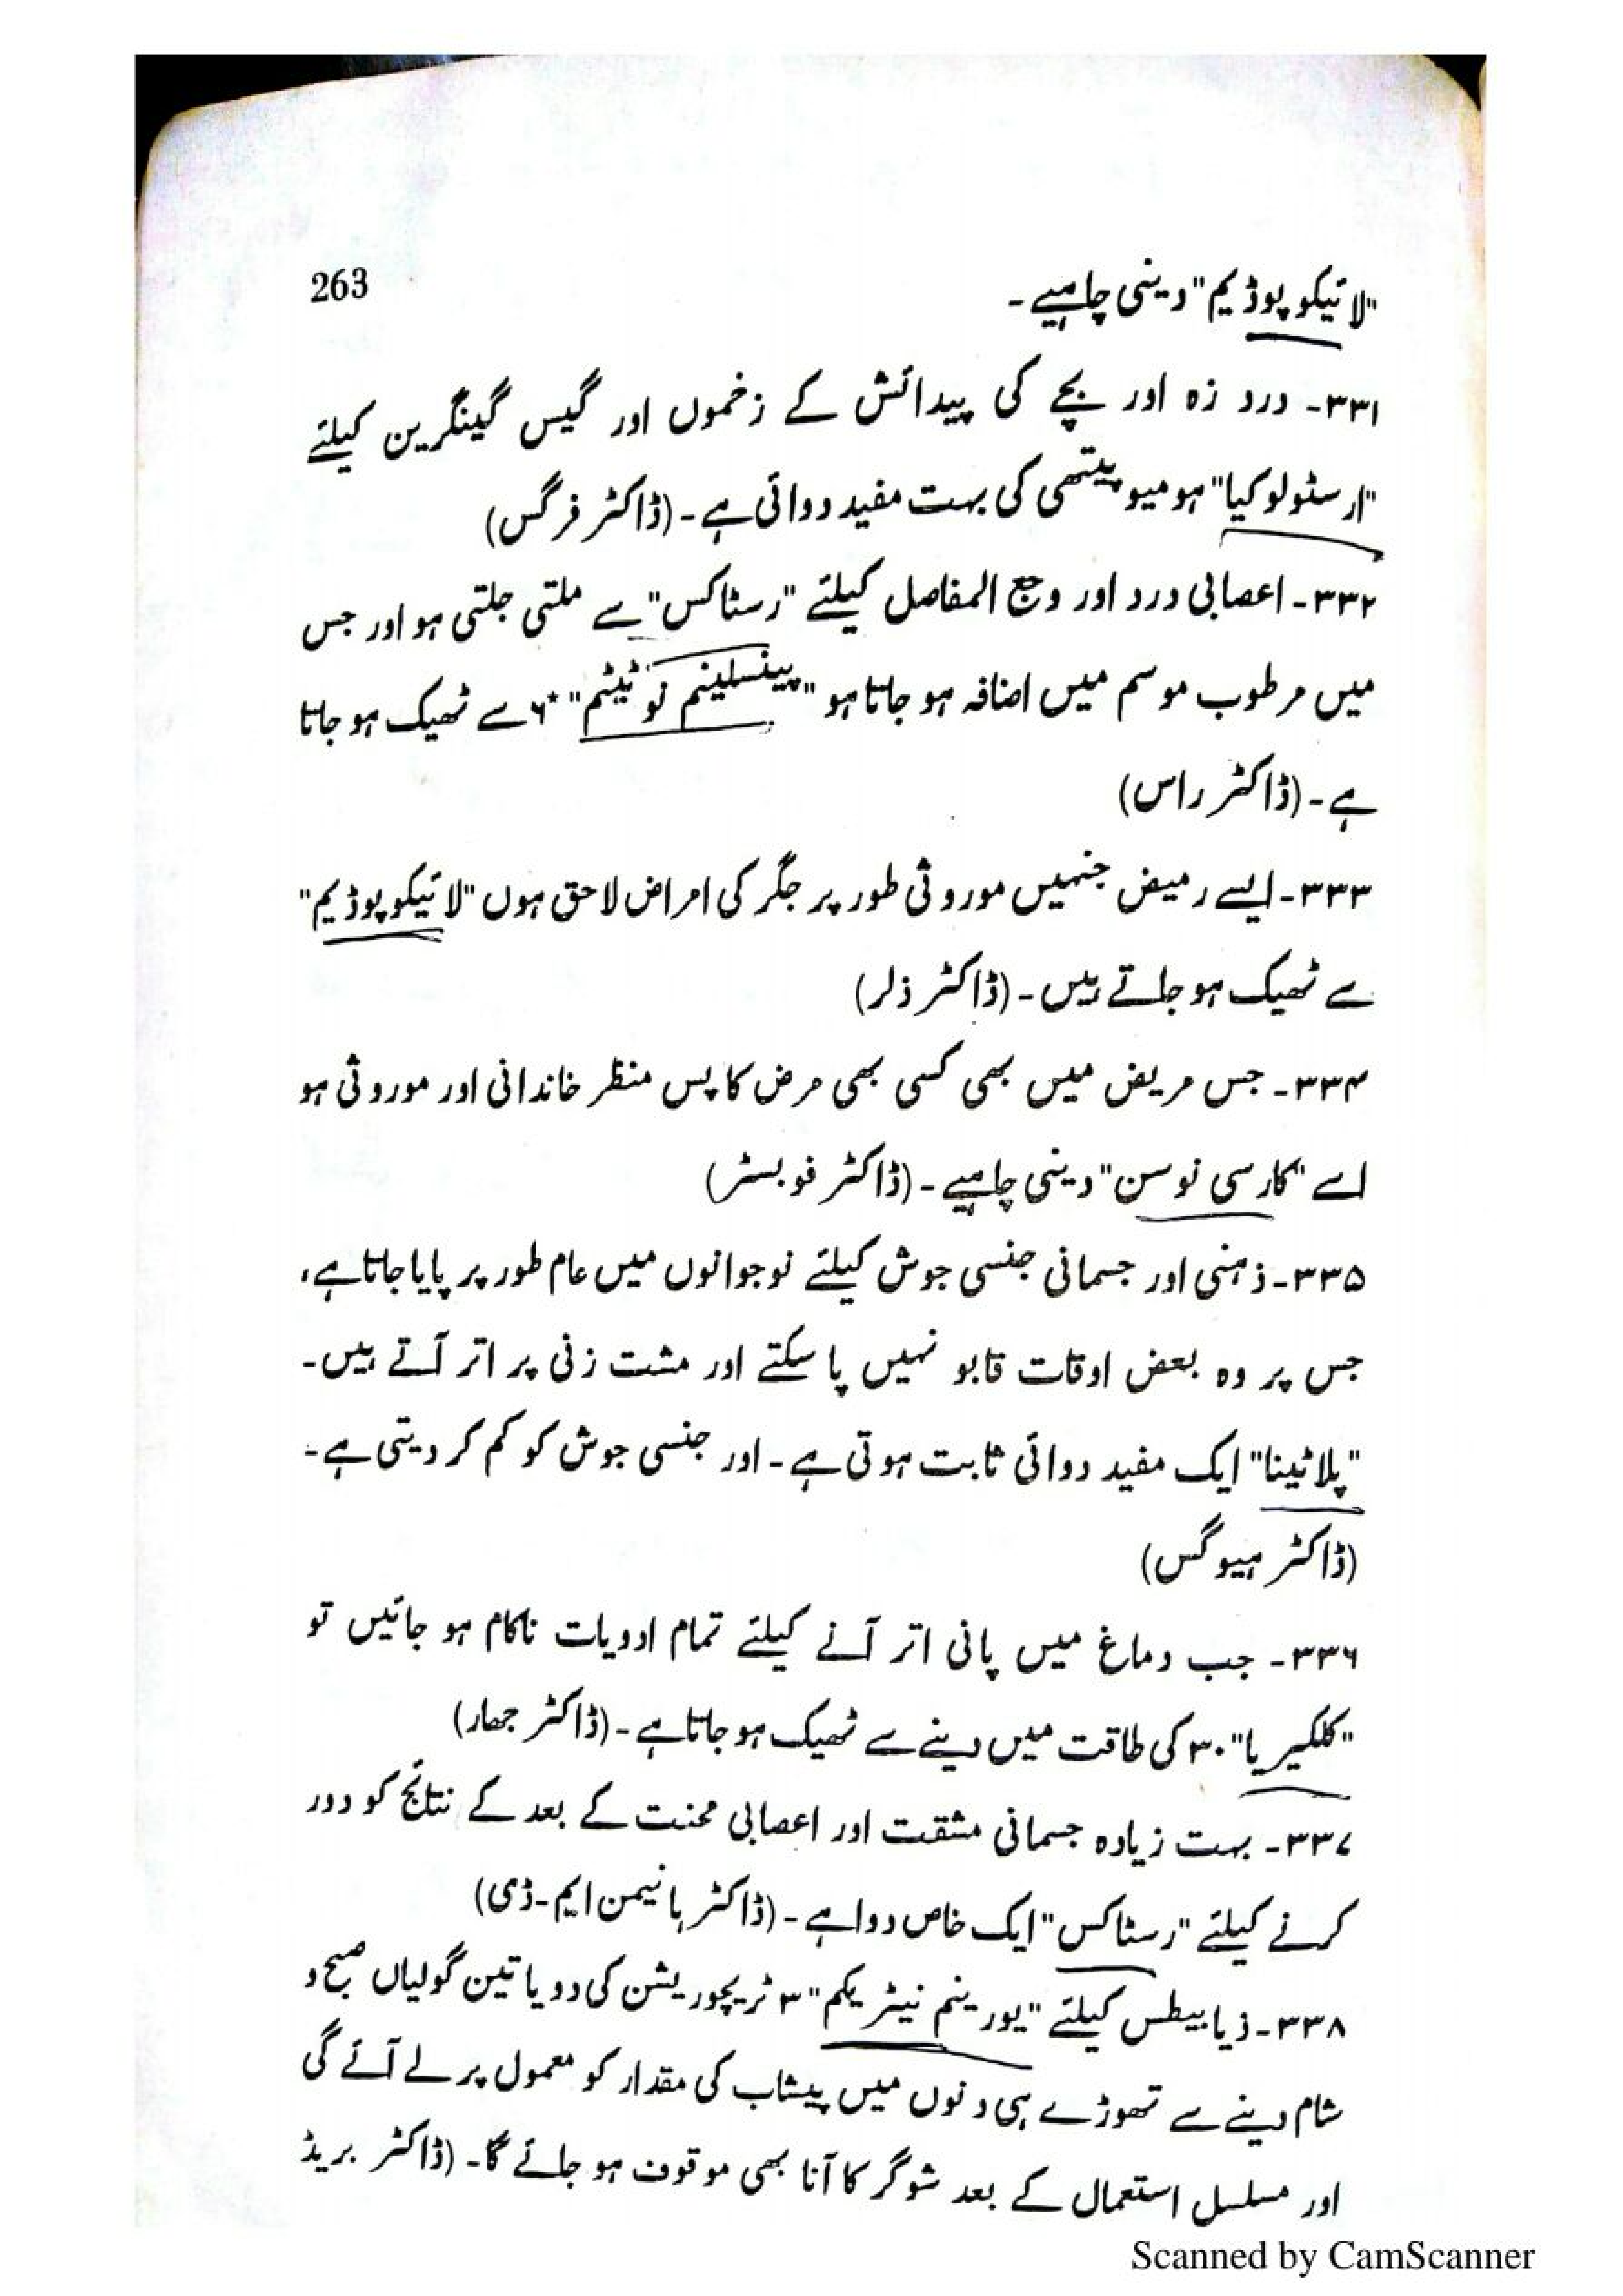 263
"لائیکوپوڈیم" دینی چاہیے۔
۳۳۱۔ درد زہ اور بچے کی پیدائش کے زخموں اور گیس گینگرین کیلئے
"ارسٹولوکیا" ہومیوپیتھی کی بہت مفید دوائی ہے۔ (ڈاکٹر فرگس)
۳۳۲۔ اعصابی درد اور وجع المفاصل کیلئے "رسٹاکس" سے ملتی جلتی ہو اور جس
میں مرطوب موسم میں اضافہ ہو جاتا ہو "پینسلینم نوٹیٹم" ۶* سے ٹھیک ہو جاتا
ہے۔ (ڈاکٹر راس)
۳۳۳۔ ایسے رمیض جنہیں موروثی طور پر جگر کی امراض لاحق ہوں "لائیکوپوڈیم"
سے ٹھیک ہو جاتے ہیں۔ (ڈاکٹر ذلر)
۳۳۴۔ جس مریض میں بھی کسی بھی مرض کا پس منظر خاندانی اور موروثی ہو
اسے "کارسی نوسن" دینی چاہیے۔ (ڈاکٹر فوبسٹر)
۳۳۵۔ ذہنی اور جسمانی جنسی جوش کیلئے نوجوانوں میں عام طور پر پایا جاتا ہے،
جس پر وہ بعض اوقات قابو نہیں پا سکتے اور مشت زنی پر اتر آتے ہیں۔
"پلاٹینا" ایک مفید دوائی ثابت ہوتی ہے۔ اور جنسی جوش کو کم کر دیتی ہے۔
(ڈاکٹر ہیوگس)
۳۳۶۔ جب دماغ میں پانی اتر آنے کیلئے تمام ادویات ناکام ہو جائیں تو
"کلکیریا" ۳۰ کی طاقت میں دینے سے ٹھیک ہو جاتا ہے۔ (ڈاکٹر جھار)
۳۳۷۔ بہت زیادہ جسمانی مشقت اور اعصابی محنت کے بعد کے نتائج کو دور
کرنے کیلئے "رسٹاکس" ایک خاص دوا ہے۔ (ڈاکٹر ہانیمن ایم۔ڈی)
۳۳۸۔ ذیابیطس کیلئے "یورینم نیٹریکم" ۳ ٹریچوریشن کی دو یا تین گولیاں صبح و
شام دینے سے تھوڑے ہی دنوں میں پیشاب کی مقدار کو معمول پر لے آئے گی
اور مسلسل استعمال کے بعد شوگر کا آنا بھی موقوف ہو جائے گا۔ (ڈاکٹر بریڈ
Scanned by CamScanner